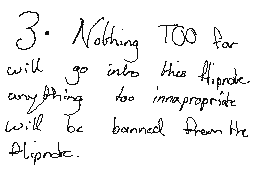 3. Nothing TOO far
will go into this flipnote.
anything too innapropriate
will be banned from the
flipnote.